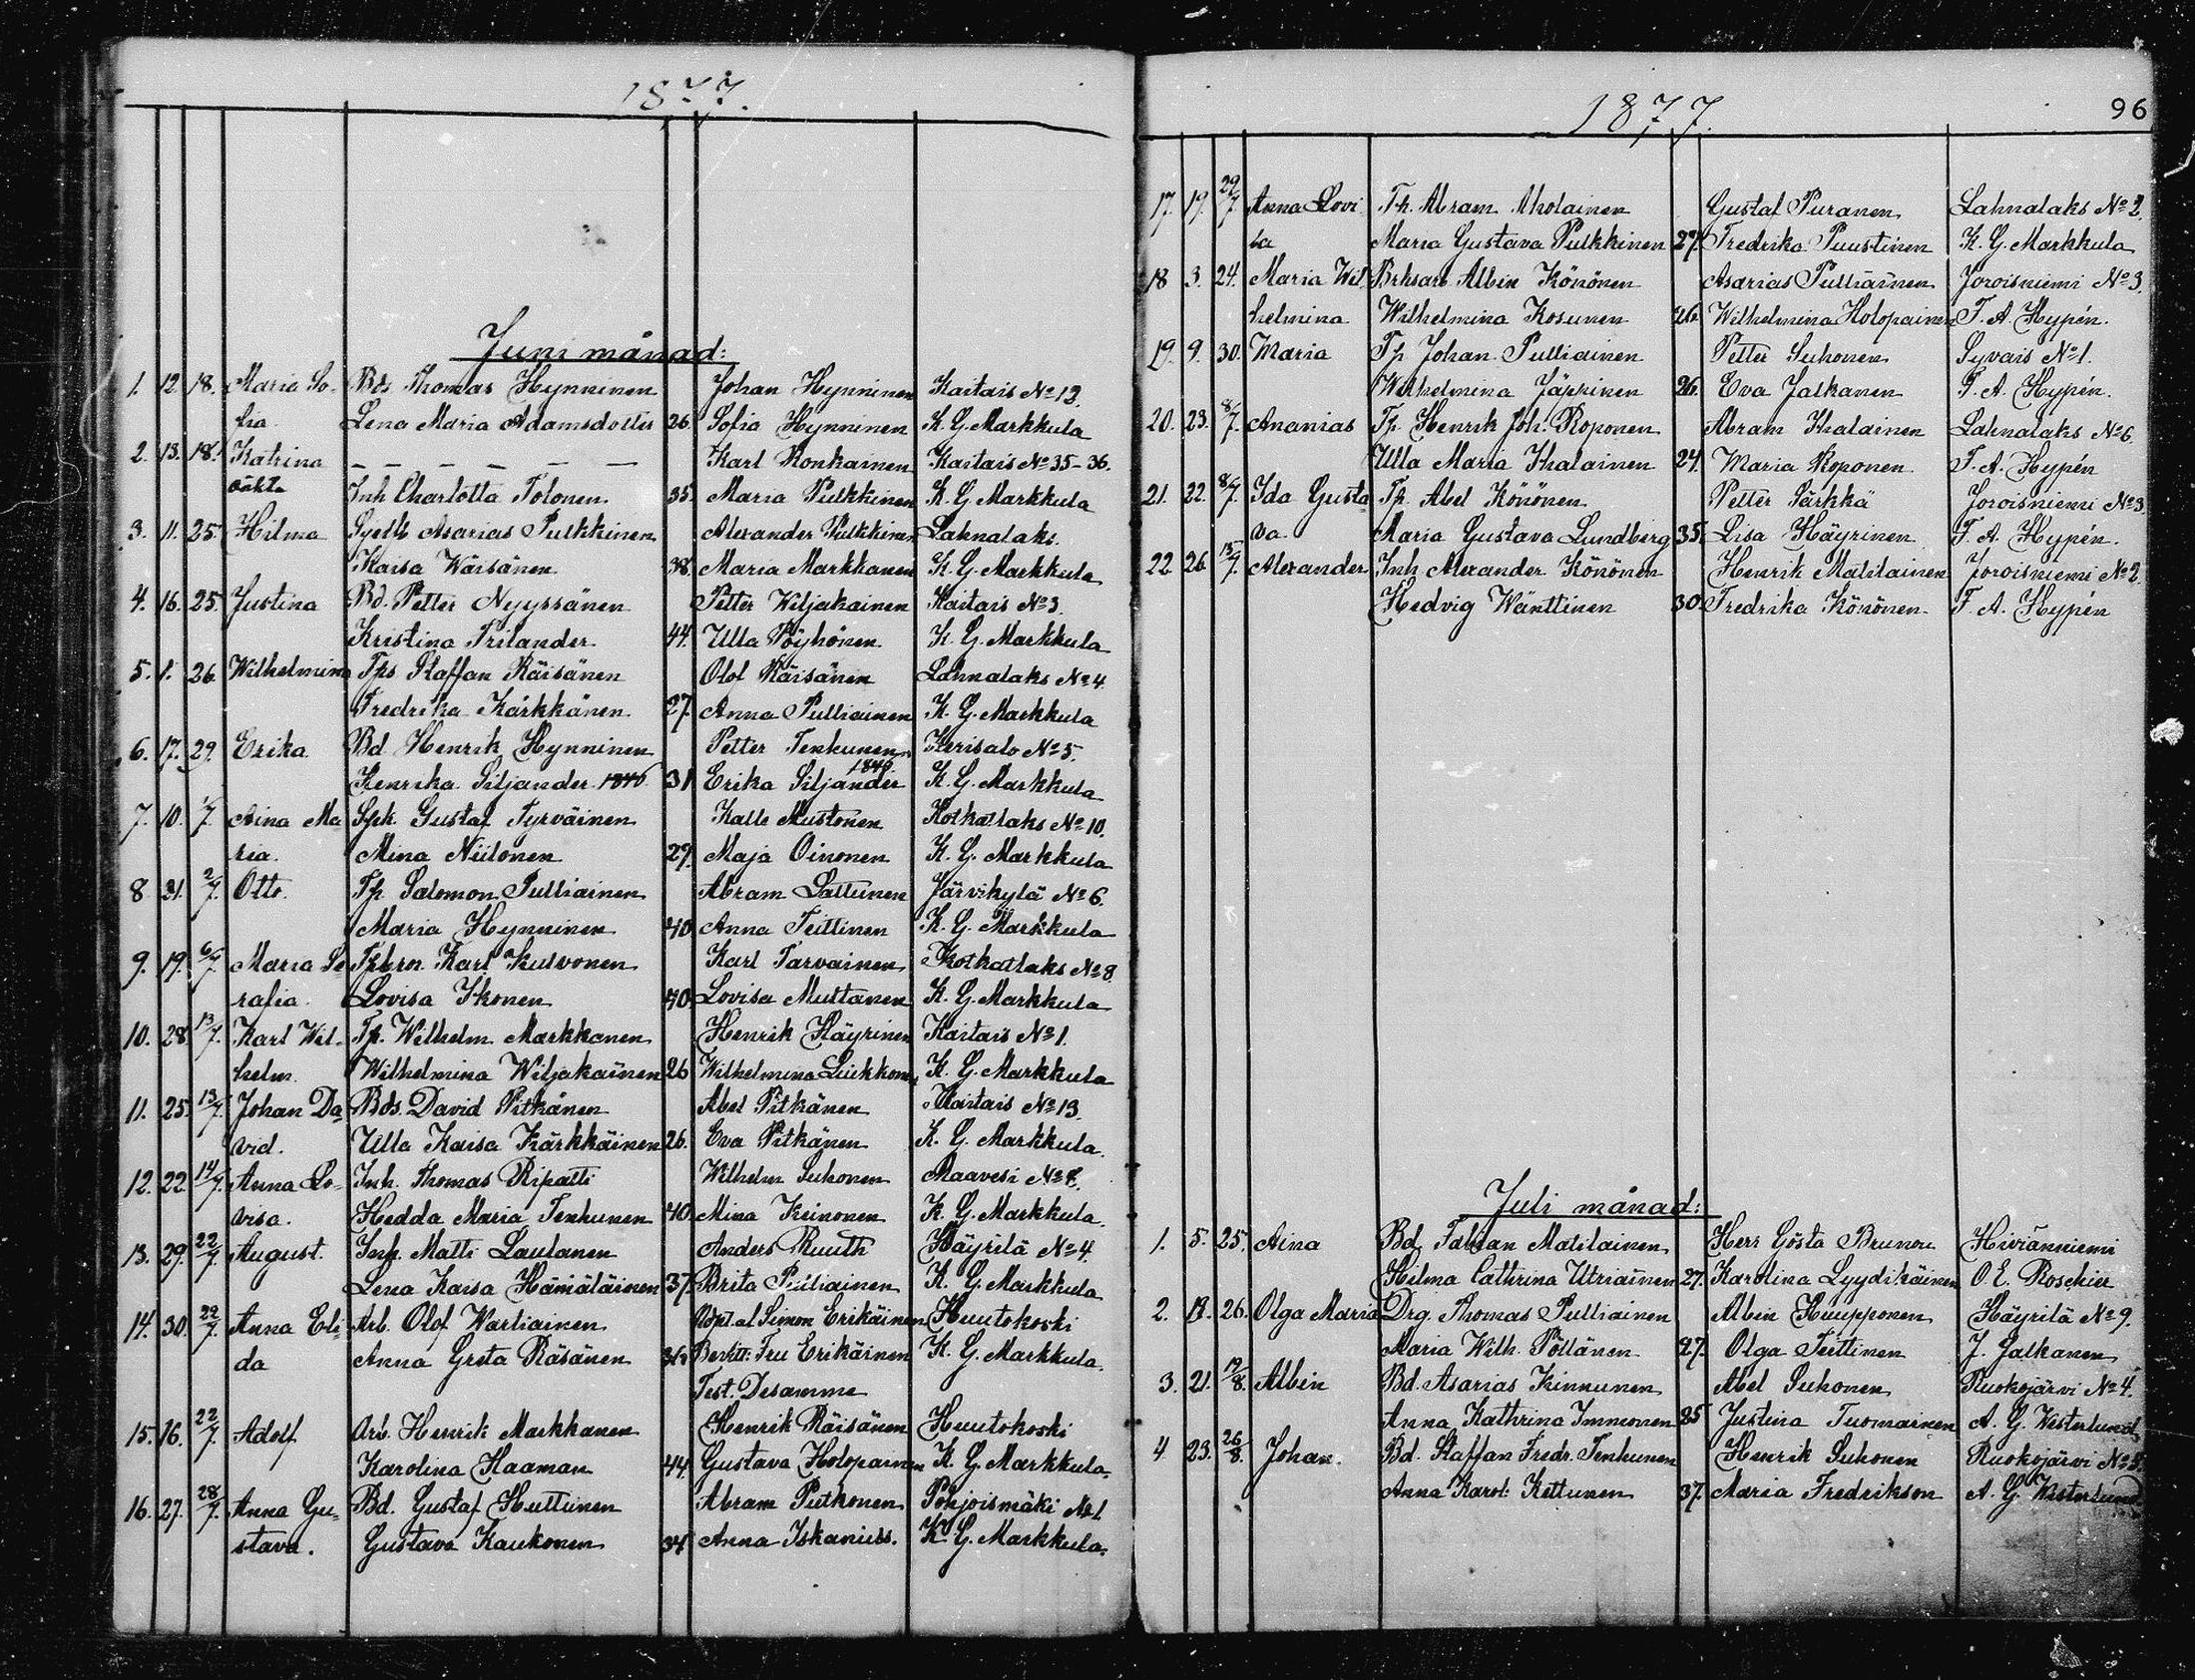 1877.
Juni månad:
1. 12. 18. Maria So- Bds Thomas Hynninen Johan Hynninen Kaitais No 13.
fia. Lena Maria Adamsdotter 26. Sofia Hynninen K. G. Markkula
2. 13. 18. Katrina – – – – – – Karl Ronkainen Kaitais No 35-36.
oäkta Inh Charlotta Tolonen 35. Maria Pulkkinen K. G. Markkula
3. 11. 25. Hilma Asarias Pulkkinen Alexander Pulkkinen Lahnalaks.
Kaisa Wäisänen 38. Maria Markkanen K. G. Markkula
4. 16. 25. Justina Bd. Petter Nyyssänen Petter Wiljakainen Kaitais No 3.
Kristina Frilander 44. Ulla Pöyhönen K. G. Markkula
5. 1. 26. Wilhelmina Tps Staffan Räisänen Olof Räisänen Lahnalaks No 4.
Fredrika Kärkkänen 27. Anna Pulliainen K. G. Markkula
6. 17. 29. Erika Bd Henrik Hynninen Petter Tenhunen Kerisalo No 5.
Henrika Siljander 1846 31 Erika Siljander 1846 K. G. Markkula
7. 10. 1/7. Aina Ma Spk Gustaf Tyrväinen Kalle Mustonen Kotkatlaks No 10.
ria. Mina Niilonen 29. Maja Oinonen K. G. Markkula
8 31. 2/7. Otto. Tp Salomon Pulliainen Abram Lattunen Järvikylä No 6.
Maria Hynninen 40 Anna Teittinen K. G. Markkula
9. 19. 6/7. Maria Se Tpbror. Karl Kulvonen Karl Tarvainen Kotkatlaks No 8.
rafia. Lovisa Ikonen 40. Lovisa Muttanen K. G. Markkula
10. 28. 13/7. Karl Wil- Tp. Wilhelm Markkanen Henrik Häyrinen Kaitais No 1.
helm. Wilhelmina Wiljakainen 26 Wilhelmina K. G. Markkula
11. 25. 13/7. Johan Da Bds. David Pitkänen Abel Pitkänen Kaitais No 13.
vid. Ulla Kaisa Kärkkäinen 26. Eva Pitkänen K. G. Markkula.
12. 22. 14/7. Anna Lo- Inh. Thomas Ripatti Wilhelm Suhonen Maavesi
visa. Hedda Maria Tenhunen 40. Mina Keinonen K. G. Markkula.
13. 29. 22/7. August. Inh. Matti Laulanen Anders Ruuth Häyrilä No 4.
Lena Kaisa Hämäläinen 37. Brita Pulliainen K. G. Markkula
14. 30. 22/7. Anna Eli- Arb. Olof Wartiainen Simon Erikäinen Huutokoski
da Anna Greta Räsänen 36 Fru Erikäinen K. G. Markkula.
Test. Desamme
15. 16. 22/7. Adolf Arb. Henrik Markkanen Henrik Räisänen Huutokoski
Karolina Haaman 44. Gustava Holopainen K. G. Markkula.
16. 27. 28/7. Anna Gu- Bd. Gustaf Huttunen Abram Putkonen Pohjoismäki No 1
stava. Gustava Kaukonen 34 Anna Iskanius. K. G. Markkula.
1877.
96
17. 19. 29/7. Anna Lovi Th. Abram Aholainen Gustaf Puranen Lahnalaks No 2.
sa Maria Gustava Pulkkinen 27. Fredrika Puustinen K. G. Markkula
18 3. 24. Maria Wil Brksarb Albin Könönen Asarias Pulliainen Joroisniemi No 3.
helmina Wilhelmina Kosunen 26. Wilhelmina Holopainen F. A. Hypén.
19. 9. 30. Maria Tp Johan Pulliainen Petter Suhonen Syvais No 1.
Wilhelmina Jäppinen 26. Eva Jalkanen F. A. Hypén.
20. 23. 8/7. Ananias Tp. Henrik Joh. Roponen Abram Ihalainen Lahnalaks No 6.
Ulla Maria Ihalainen 24. Maria Roponen F. A. Hypén
21. 22. 8/7. Ida Gusta Tp. Abel Könönen Petter Särkkä Joroisniemi No 3.
va. Maria Gustava Lundberg 35. Lisa Häyrinen F. A. Hypén.
22 26. 15/7. Alexander Inh Alexander Könönen Henrik Matilainen Joroisniemi No 2.
Hedvig Wänttinen 30. Fredrika Könönen F. A. Hypén
Juli månad:
1. 5. 25. Aina Bd. Fabian Matilainen Herr Gösta Brunou Hiviänniemi
Hilma Cathrina Utriainen 27. Karolina Lyydikäinen O. E. Roschier
2. 26. Olga Maria Drg. Thomas Pulliainen Albin Huupponen Häyrilä No 9.
Maria Wilh. Pöllänen 27. Olga Teittinen J. Jalkanen
3. 21. 19/8. Albin Bd. Asarias Kinnunen Abel Suhonen Ruokojärvi No 4.
Anna Kathrina Immonen 25 Justina Tuomainen A. G. Westerlund
4 23. 26/8. Johan. Bd. Staffan Fredr. Tenhunen Henrik Suhonen Ruokojärvi
Anna Karol: Kettunen 37. Maria Fredrikson A. G. Westerlund